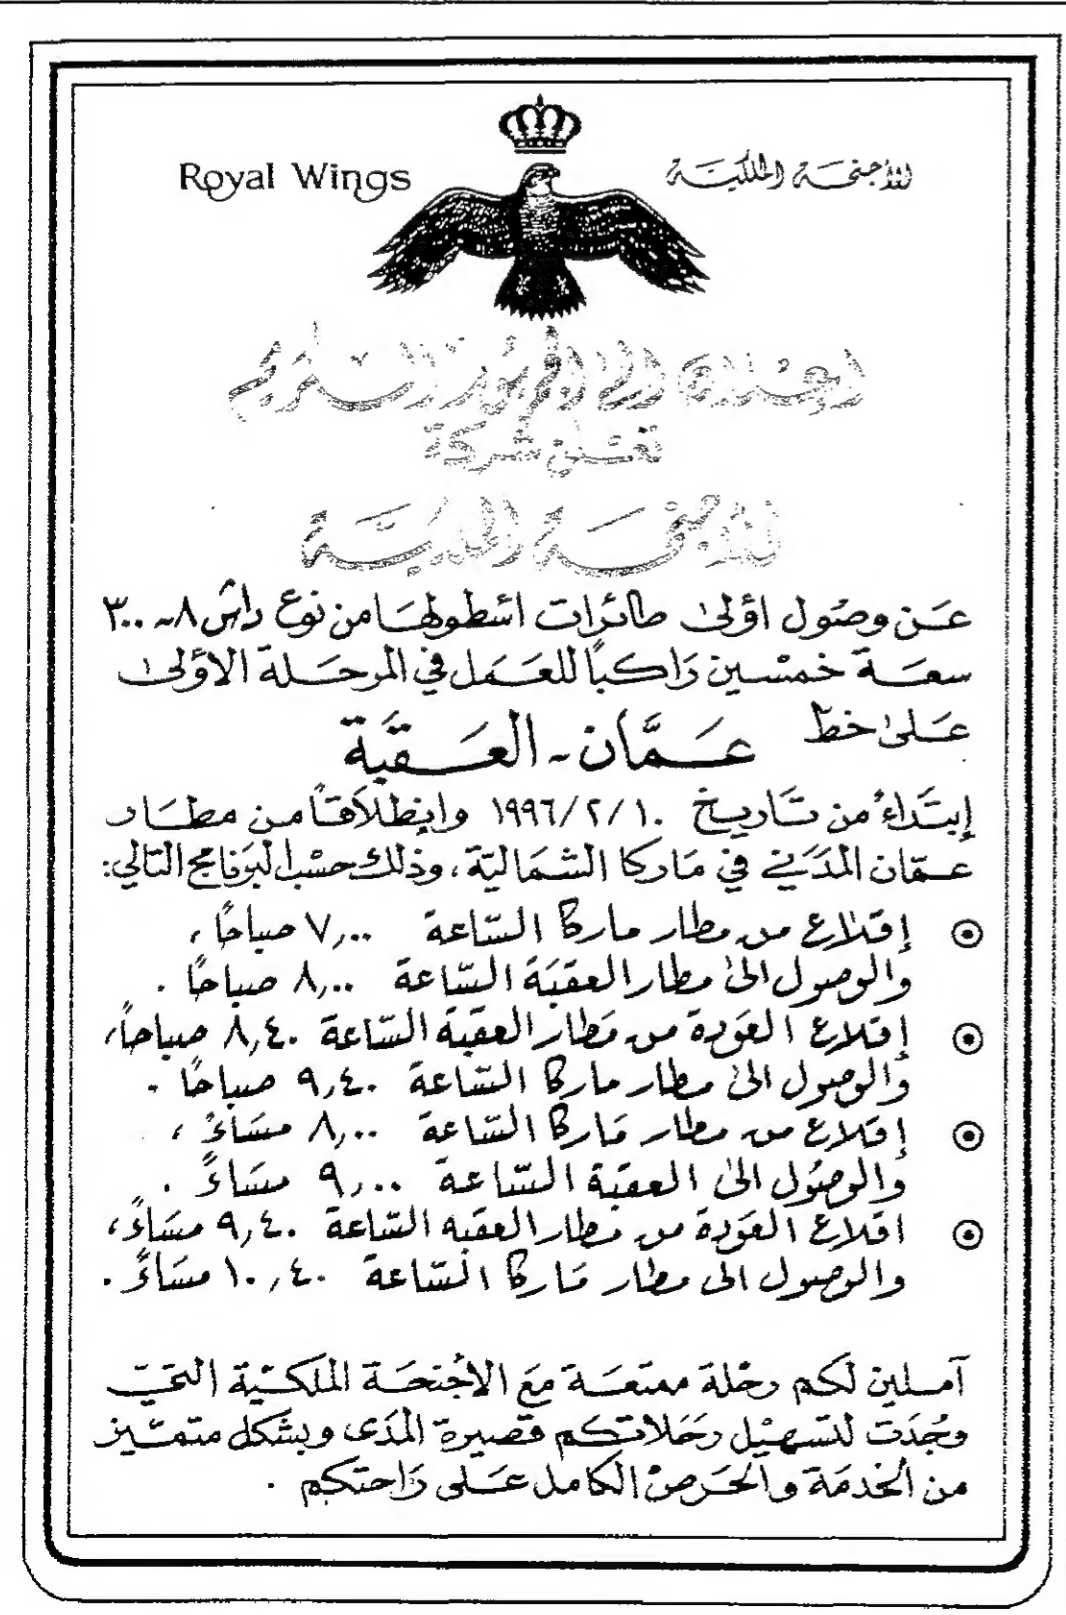 Royal Wings
الأجنحة الملكية
إعلان إلى الجمهور الكريم
تعلن شركة
الأجنحة الملكية
عن وصول أولى طائرات اسطولها من نوع داش ٨ - ٣٠٠
سعة خمسين راكباً للعمل في المرحلة الأولى
على خط عمّان - العقبة
إبتداءً من تاريخ ١٩٩٦/٢/١٠ وإنطلاقاً من مطار
عمّان المدني في ماركا الشمالية، وذلك حسب البرنامج التالي:
إقلاع من مطار ماركا السّاعة ٧,٠٠ صباحاً،
والوصول الى مطار العقبة السّاعة ٨,٠٠ صباحاً.
إقلاع العودة من مطار العقبة السّاعة ٨,٤٠ صباحاً،
والوصول الى مطار ماركا السّاعة ٩,٤٠ صباحاً.
إقلاع من مطار ماركا السّاعة ٨,٠٠ مساءً،
والوصول الى العقبة السّاعة ٩,٠٠ مساءً.
اقلاع العودة من مطار العقبه السّاعة ٩,٤٠ مساءً،
والوصول الى مطار ماركا السّاعة ١٠,٤٠ مساءً.
آملين لكم رحلة ممتعة مع الأجنحة الملكيّة التي
وجدت لتسهيل رحلاتكم قصيرة المدى وبشكل متميّز
من الخدمة والحرص الكامل على راحتكم.